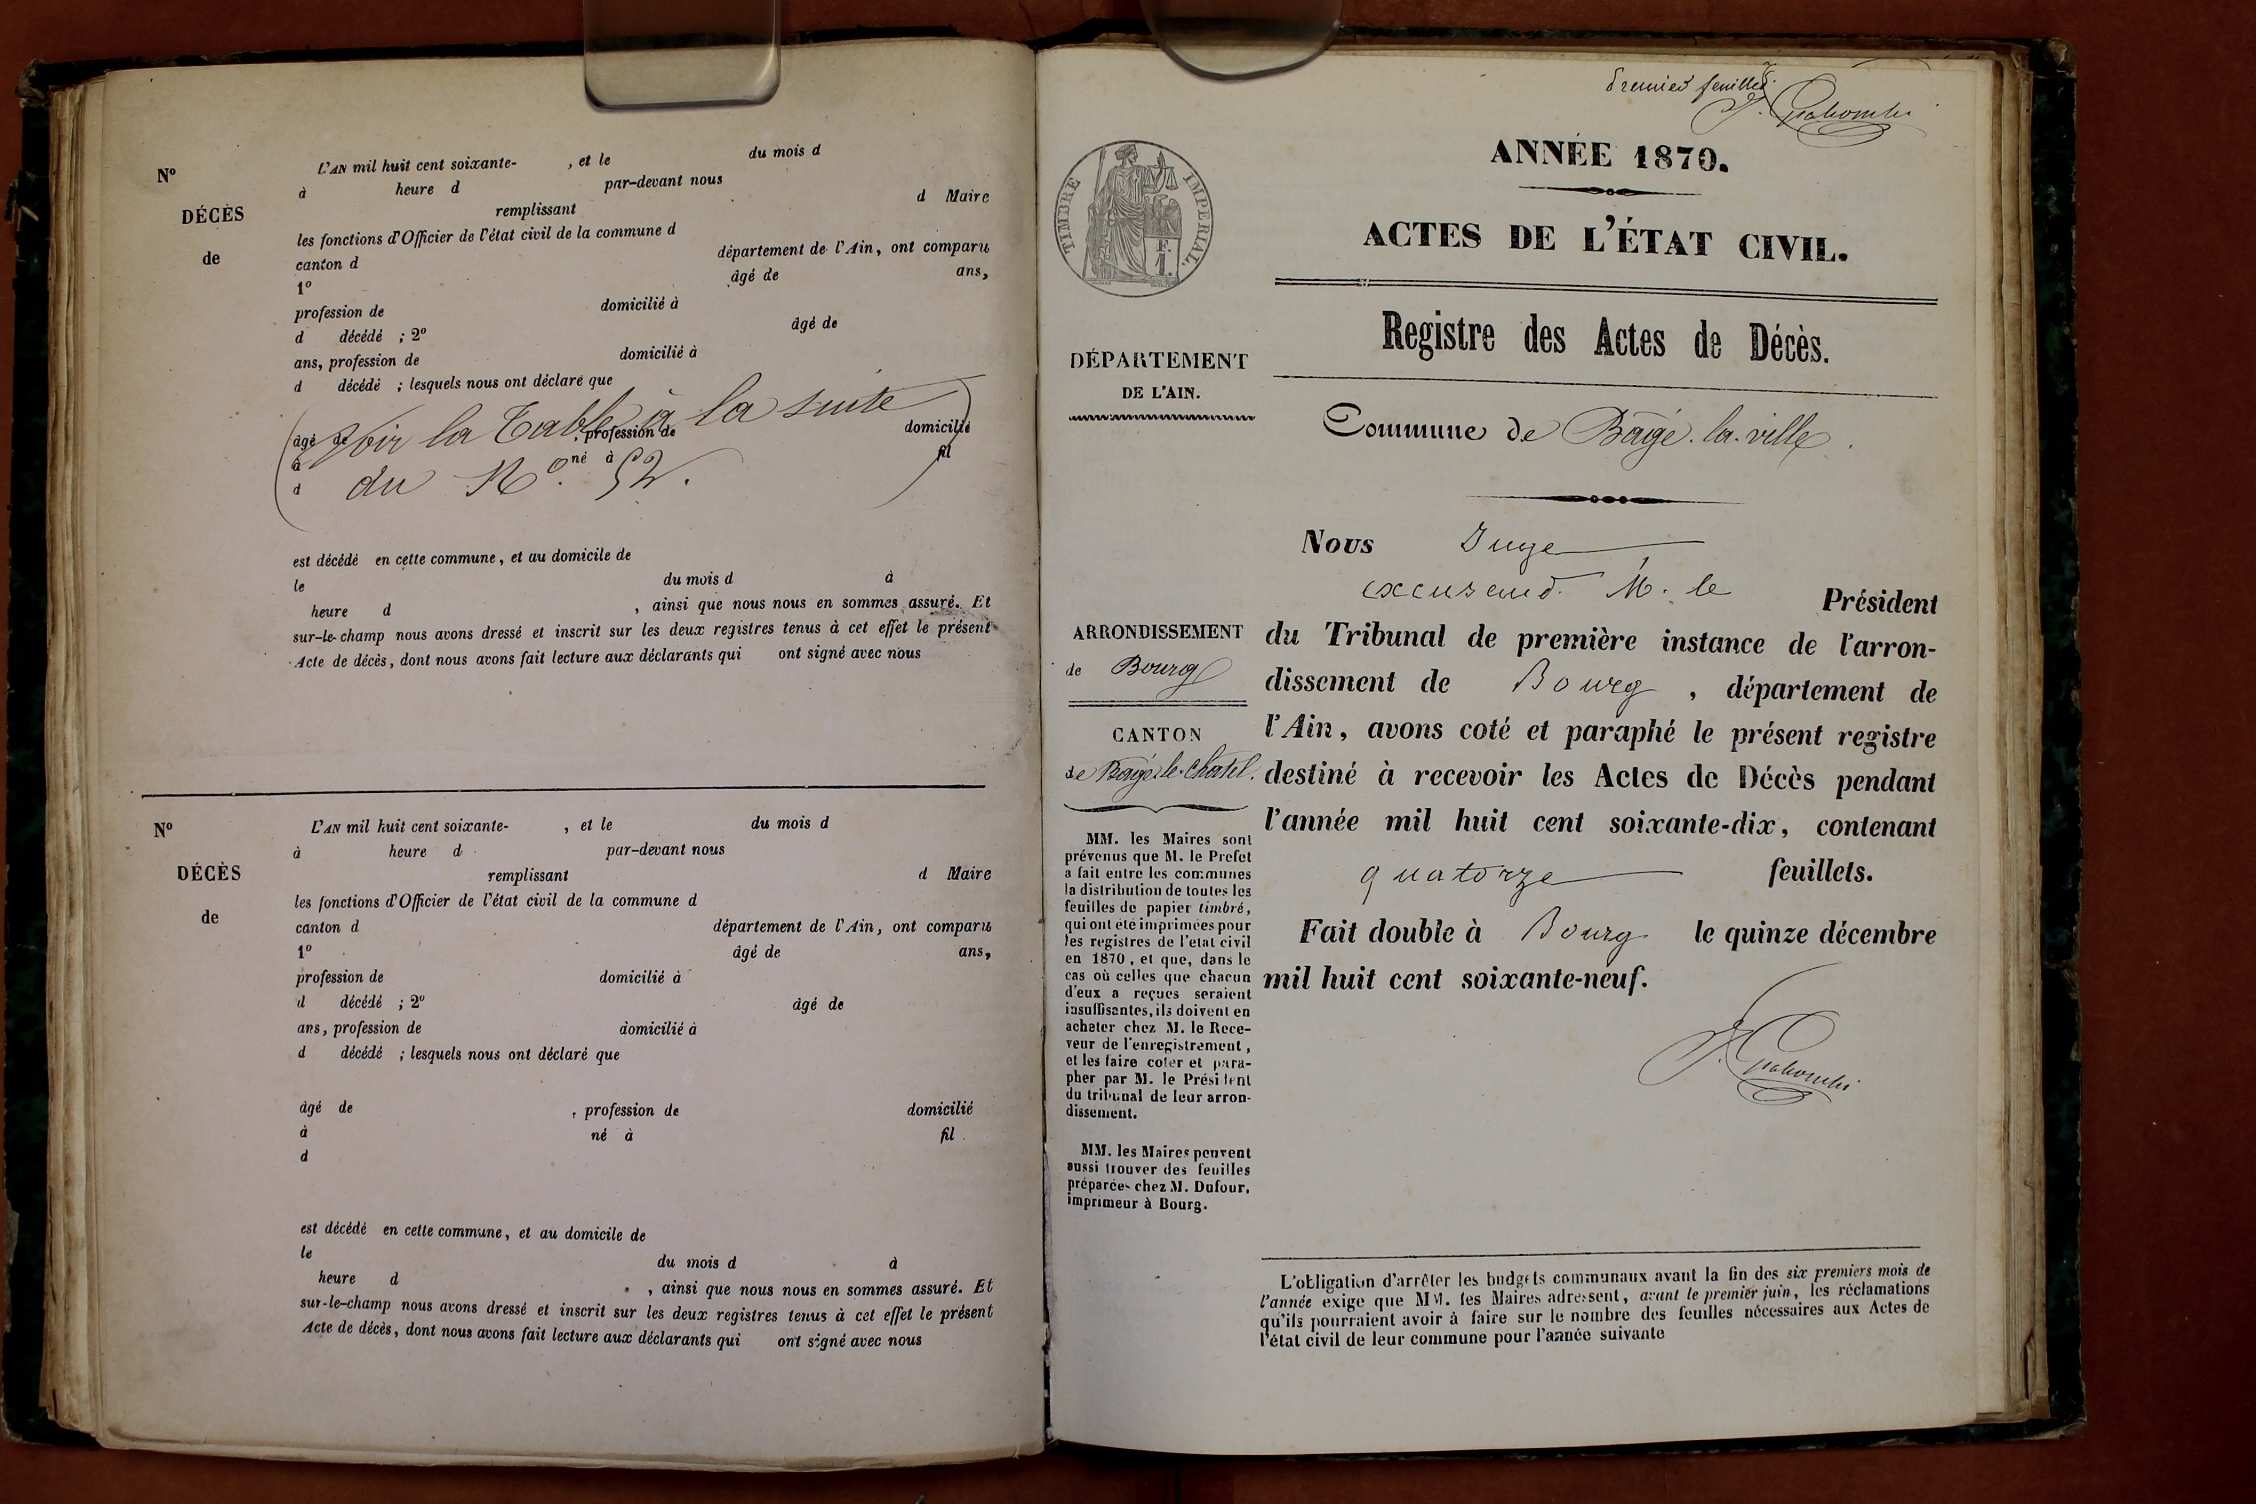 N°
DÉCÈS
de
L'AN mil huit cent soixante- , et le du mois d
à heure d par-devant nous
remplissant d Maire
les fonctions d'Officier de l'état civil de la commune d
canton d département de l'Ain, ont comparu
1° âgé de ans,
profession de domicilié à
d décédé ; 2° âgé de
ans, profession de domicilié à
d décédé ; lesquels nous ont déclaré que
(Voir la Table à la suite
âgé de , profession de domicilié
à né à fil
d du N°. 52.)
est décédé en cette commune, et au domicile de
le du mois d à
heure d , ainsi que nous nous en sommes assuré. Et
sur-le-champ nous avons dressé et inscrit sur les deux registres tenus à cet effet le présent
Acte de décès, dont nous avons fait lecture aux déclarants qui ont signé avec nous
N°
DÉCÈS
de
L'AN mil huit cent soixante- , et le du mois d
à heure d par-devant nous
remplissant d Maire
les fonctions d'Officier de l'état civil de la commune d
canton d département de l'Ain, ont comparu
1° âgé de ans,
profession de domicilié à
d décédé ; 2° âgé de
ans, profession de domicilié à
d décédé ; lesquels nous ont déclaré que
âgé de , profession de domicilié
à né à fil
d
est décédé en cette commune, et au domicile de
le du mois d à
heure d , ainsi que nous nous en sommes assuré. Et
sur-le-champ nous avons dressé et inscrit sur les deux registres tenus à cet effet le présent
Acte de décès, dont nous avons fait lecture aux déclarants qui ont signé avec nous
Premier feuillet.
TIMBRE IMPERIAL.
F.
1.
ANNÉE 1870.
ACTES DE L'ÉTAT CIVIL.
Registre des Actes de Décès.
Commune de Bâgé-la-ville.
DÉPARTEMENT
DE L'AIN.
ARRONDISSEMENT
de Bourg
CANTON
de Bâgé-le-Chatel.
MM. les Maires sont
prévenus que M. le Prefet
a fait entre les communes
la distribution de toutes les
feuilles de papier timbré,
qui ont été imprimées pour
les registres de l'etat civil
en 1870, et que, dans le
cas où celles que chacun
d'eux a reçues seraient
insuffisantes, ils doivent en
acheter chez M. le Rece-
veur de l'enregistrement,
et les faire coter et para-
pher par M. le Président
du tribunal de leur arron-
dissement.
MM. les Maires peuvent
aussi trouver des feuilles
préparées chez M. Dufour,
imprimeur à Bourg.
Nous Juge
excusant M. le Président
du Tribunal de première instance de l'arron-
dissement de Bourg, département de
l'Ain, avons coté et paraphé le présent registre
destiné à recevoir les Actes de Décès pendant
l'année mil huit cent soixante-dix, contenant
quatorze feuillets.
Fait double à Bourg le quinze décembre
mil huit cent soixante-neuf.
L'obligation d'arrêter les budgets communaux avant la fin des six premiers mois de
l'année exige que MM. les Maires adressent, avant le premier juin, les réclamations
qu'ils pourraient avoir à faire sur le nombre des feuilles nécessaires aux Actes de
l'état civil de leur commune pour l'année suivante